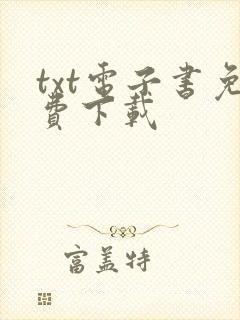 txt電子書免
費下載
富盖特